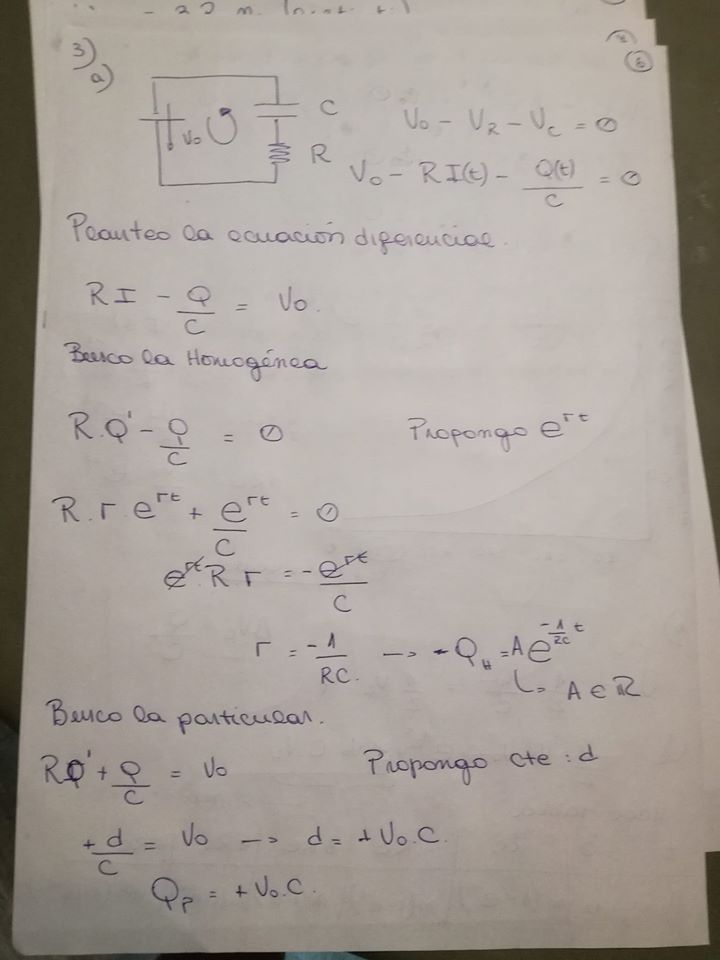 3)
a)
C
V₀
R
V₀ - V_R - V_C = 0
V₀ - R I(t) - Q(t)/C = 0
Planteo la ecuación diferencial.
R I - Q/C = V₀.
Busco la Homogénea
R.Q' - Q/C = 0 Propongo e^{rt}
R.r.e^{rt} + e^{rt}/C = 0
e^{rt} R r = -e^{rt}/C
r = -1/RC. → -Q_H = A e^{-1/RC t}
↳ A ∈ ℝ
Busco la particular.
RQ' + Q/C = V₀ Propongo cte : d
+d/C = V₀ → d = +V₀.C.
Q_P = +V₀.C.